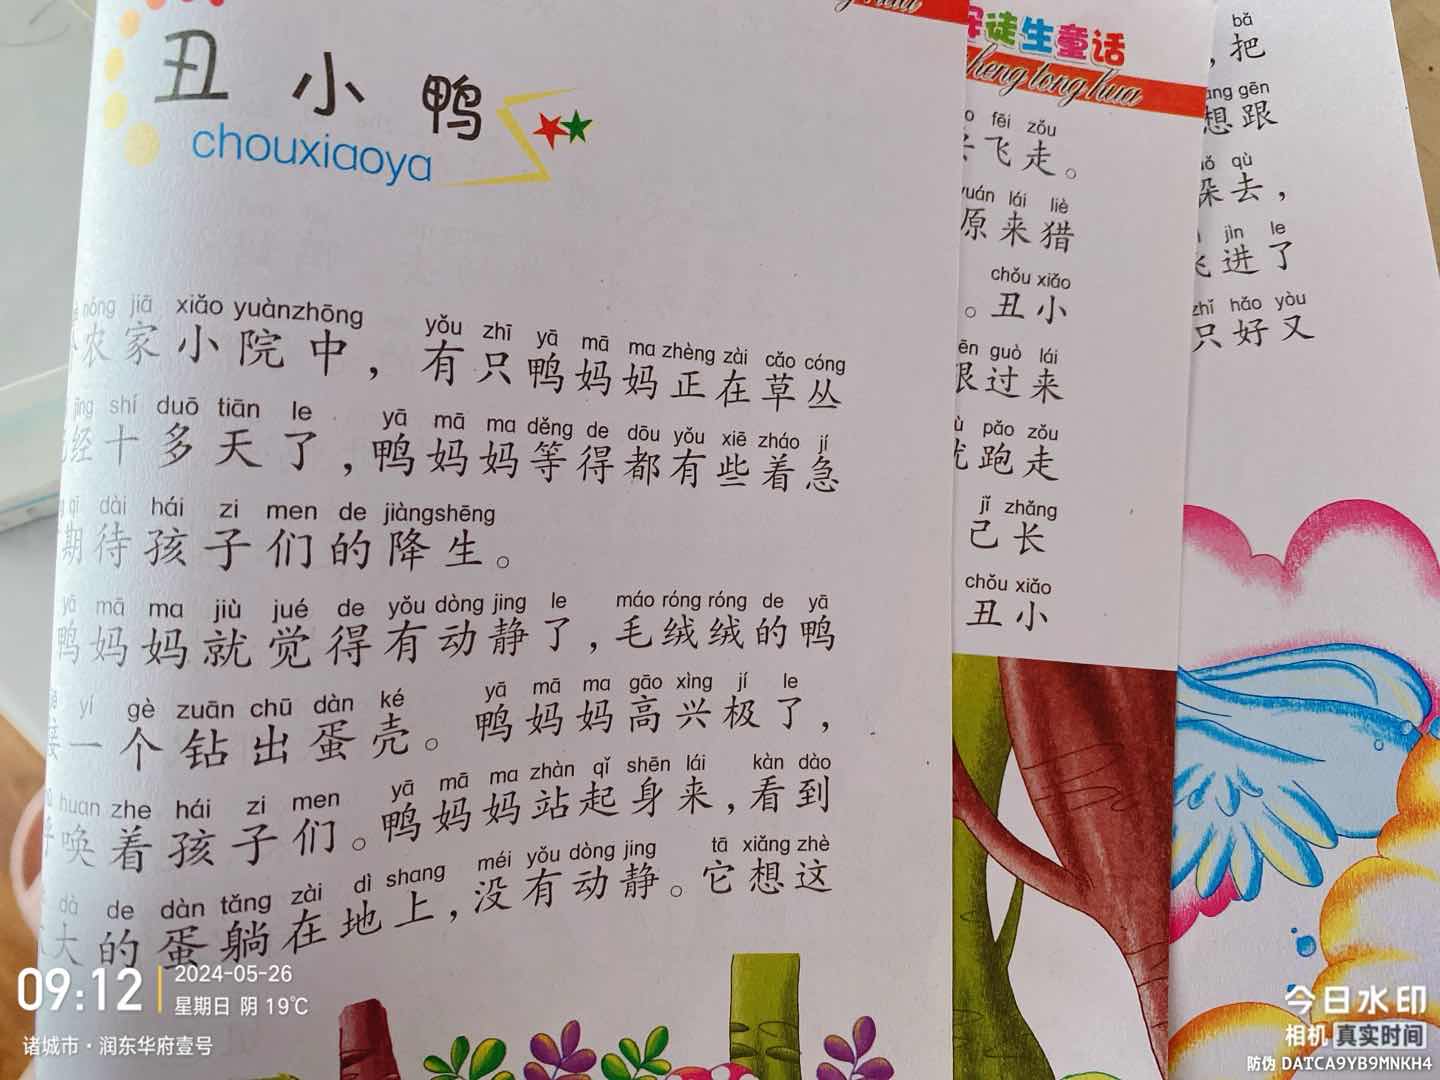 丑小鸭
chouxiaoya
nóng jiā xiǎo yuànzhōng yǒu zhī yā mā ma zhèng zài cǎo cóng
农家小院中，有只鸭妈妈正在草丛
jīng shí duō tiān le yā mā ma děng de dōu yǒu xiē zháo jí
经十多天了，鸭妈妈等得都有些着急
qī dài hái zi men de jiàngshēng
期待孩子们的降生。
yā mā ma jiù jué de yǒu dòng jing le máo róng róng de yā
鸭妈妈就觉得有动静了，毛绒绒的鸭
yí gè zuān chū dàn ké yā mā ma gāo xìng jí le
接一个钻出蛋壳。鸭妈妈高兴极了，
huan zhe hái zi men yā mā ma zhàn qǐ shēn lái kàn dào
唤着孩子们。鸭妈妈站起身来，看到
dà de dàn tǎng zài dì shang méi yǒu dòng jing tā xiǎng zhè
大的蛋躺在地上，没有动静。它想这
徒生童话
heng tong hua
fēi zǒu
飞走。
yuán lái liè
原来猎
chǒu xiǎo
。丑小
guò lái
跟过来
pǎo zǒu
就跑走
jǐ zhǎng
己长
chǒu xiǎo
丑小
bǎ
，把
gēn
想跟
qù
躲去，
jìn le
飞进了
zhǐ hǎo yòu
只好又
09:12
2024-05-26
星期日 阴 19℃
诸城市·润东华府壹号
今日水印
相机 真实时间
防伪 DATCA9YB9MNKH4